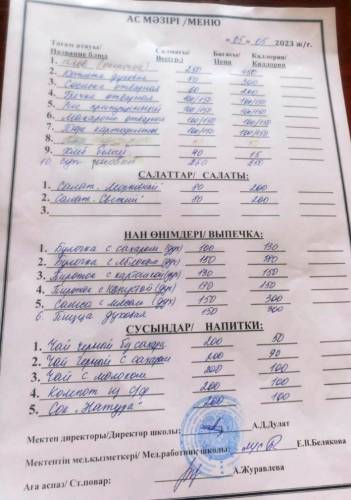 АС МӘЗІРІ /МЕНЮ
«05» 05 2023 ж/г.
Тағам атауы/ Салмағы/ Бағасы/ Каллория/
Название блюд Вес(гр.) Цена Каллории
1. Плов 250 450
2. Котлета духовая 80 300
3. Сосиска отварная 60 200
4. Гречка отварная 100/150 100/150
5. Рис припущенный 100/150 100/150
6. Макароны отварные 100/150 100/150
7. Пюре картофельное 100/150 100/150
8.
9. Хлеб белый 40 15
10. Суп 250 250
САЛАТТАР/ САЛАТЫ:
1. Салат 80 200
2. Салат „Свежий" 80 200
3.
НАН ӨНІМДЕРІ/ ВЫПЕЧКА:
1. Булочка с сахаром (дух) 100 130
2. Булочка с яблоком 150 180
3. Пирожок с картошкой (дух) 130 150
4. Пирожок с капустой (дух) 130 150
5. Самса с мясом (дух) 150 300
6. Пицца духовая 150 300
СУСЫНДАР/ НАПИТКИ:
1. Чай черный без сахара 200 50
2. Чай черный с сахаром 200 90
3. Чай с молоком 200 100
4. Компот из с/ф 200 100
5. Сок „Натура" 200 100
Мектеп директоры/Директор школы: А.Д.Дулат
Мектептің мед.қызметкері/ Мед.работник школы: Е.В.Белякова
Аға аспаз/ Ст.повар: А.Журавлева